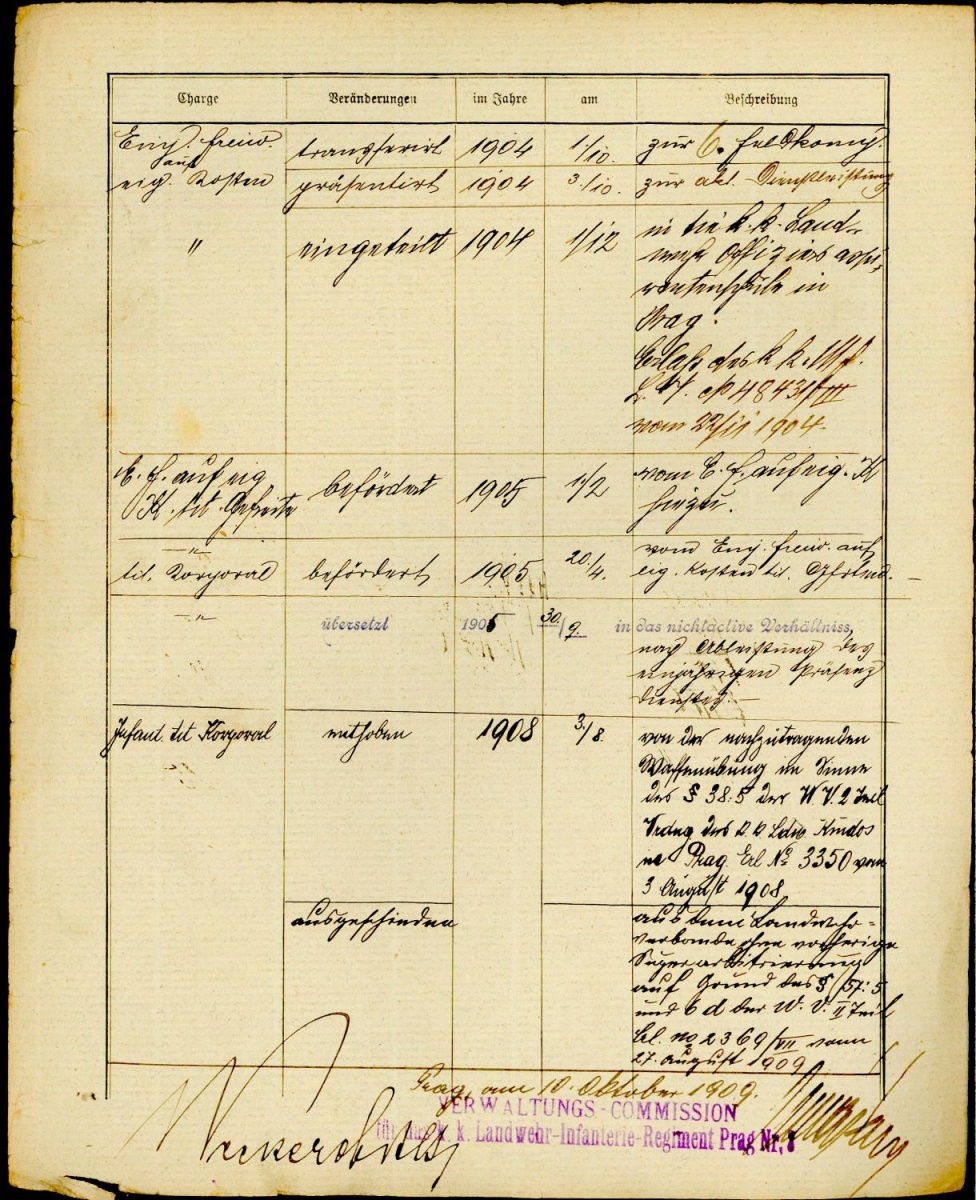 Charge Veränderungen im Jahre am Beschreibung
Einj. freiw. transferirt 1904 1/10. zur 6. Feldkomp.
auf
eig. Kosten präsentirt 1904 3/10. zur akt. Dienstleistung
" eingeteilt 1904 1/12 in die k. k. Land-
wehr Offiziersaspi-
rantenschule in
Prag.
Erlaß des k. k. M. f.
L. V. No 4843/ III
vom 22/11 1904.
E. f. auf eig
K. tit. Gefreite befördert 1905 1/2 vom E. f. auf eig. K
hiezu.
—"—
tit. Korporal befördert 1905 20/4. vom Einj. freiw. auf
eig. Kosten tit. Gfrtnd.
—"— übersetzt 1905 30/9. in das nichtactive Verhältniss,
nach Ableistung des
einjährigen Präsenz
dienstes.—
Infant. tit Korporal enthoben 1908 3./8. von der nachzutragenden
Waffenübung im Sinne
des § 38:5 der W. V. 2 Teil
Vrdng des k. k Ldw. Kmdos
in Prag Erl No 3350 vom
3 August 1908.
ausgeschieden aus dem Landwehr-
verbande ohne vorherige
Superarbitrierung
auf Grund des § 57:5
und 6 d der W. V. II Teil
Erl. No 2369/VII vom
27. August 1909
Prag, am 10. Oktober 1909.
VERWALTUNGS-COMMISSION
für das k. k. Landwehr-Infanterie-Regiment Prag Nr. 8